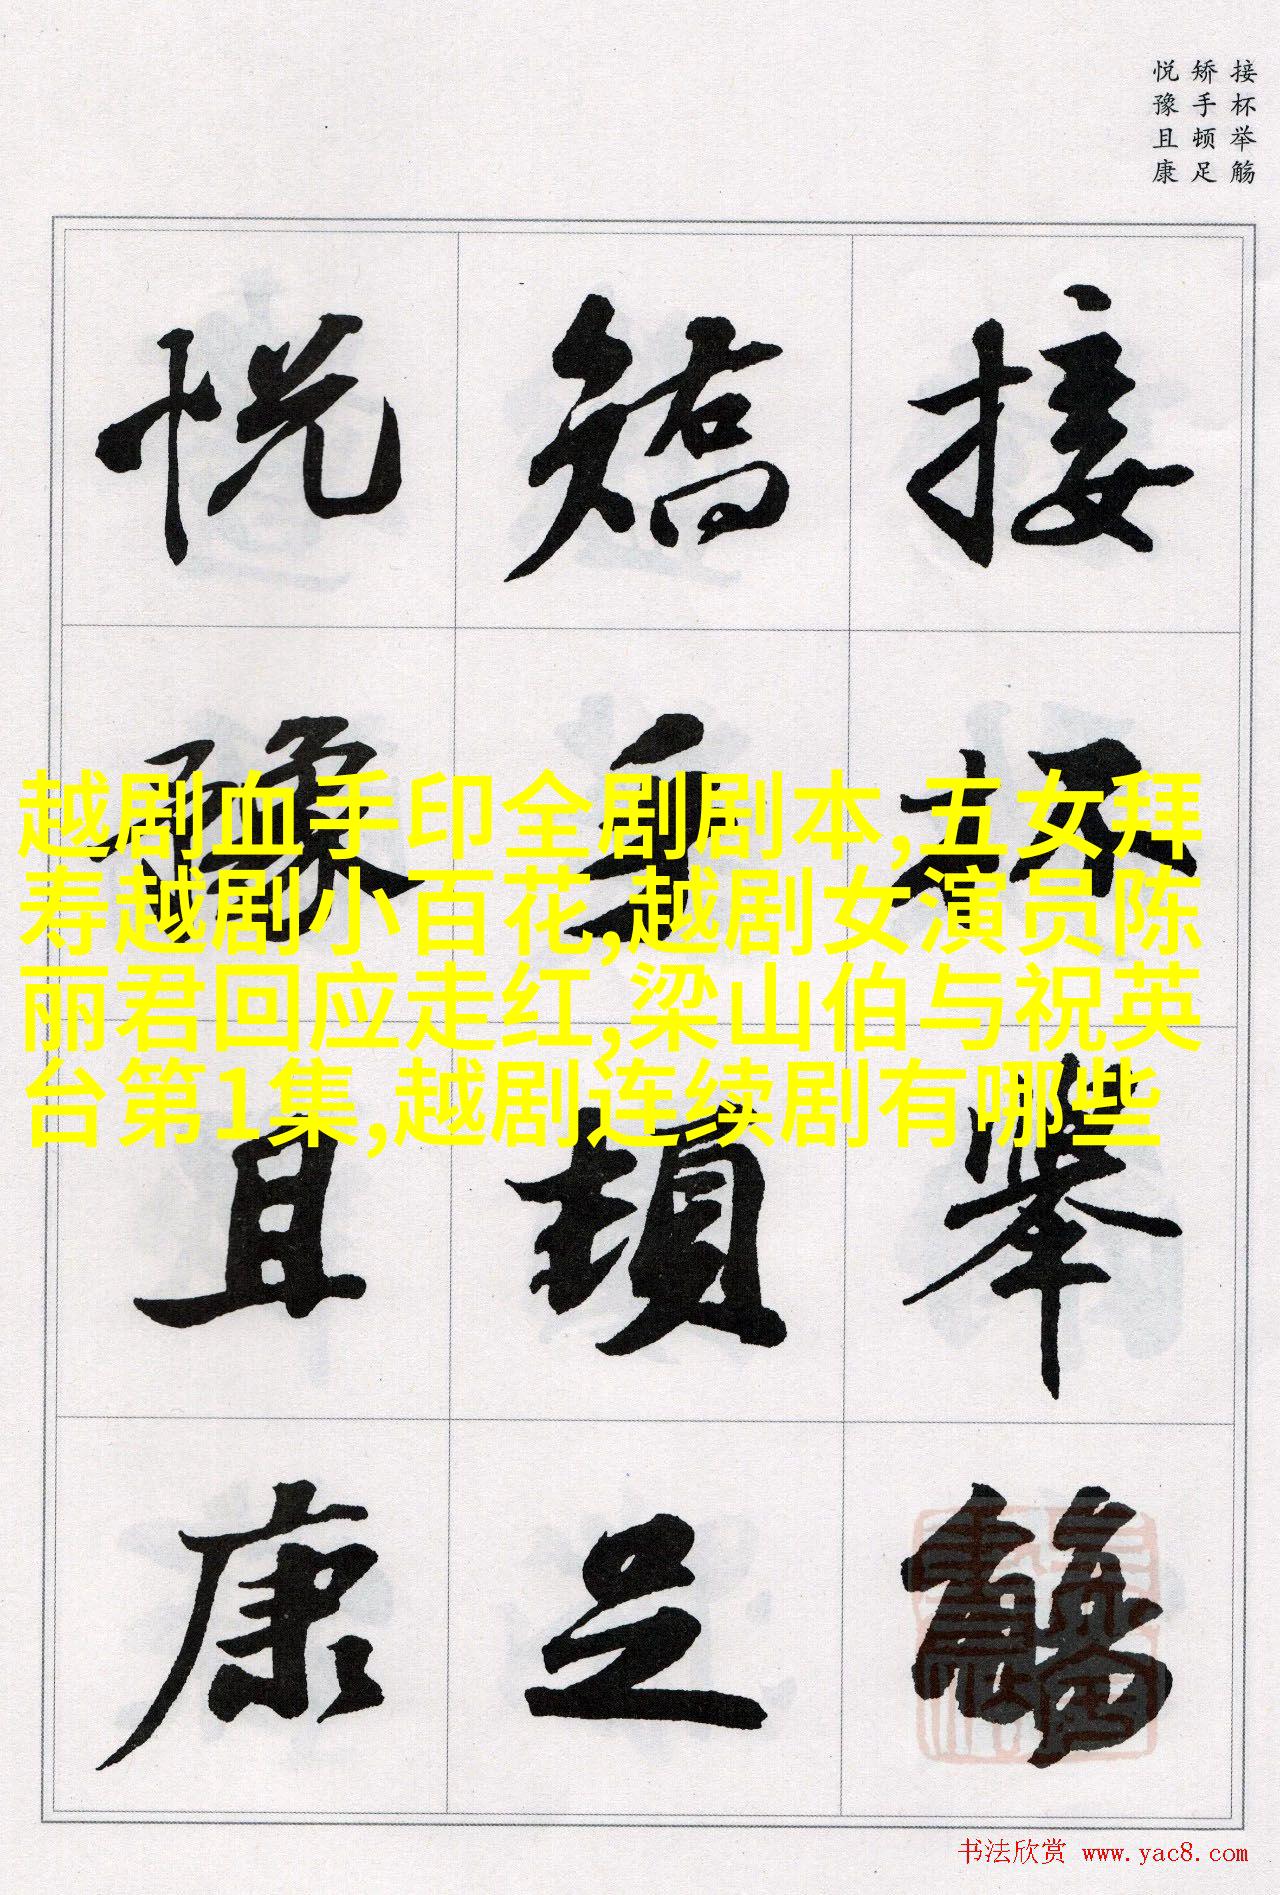 接杯举觞
矫手顿足
悦豫且康
接杯舉觴
矯手頓足
悦豫且康
越剧血手印全剧剧本,五女拜
寿越剧小百花,越剧女演员陈
丽君回应走红,梁山伯与祝英
台第1集,越剧连续剧有哪些
书法欣赏 www.yac8.com